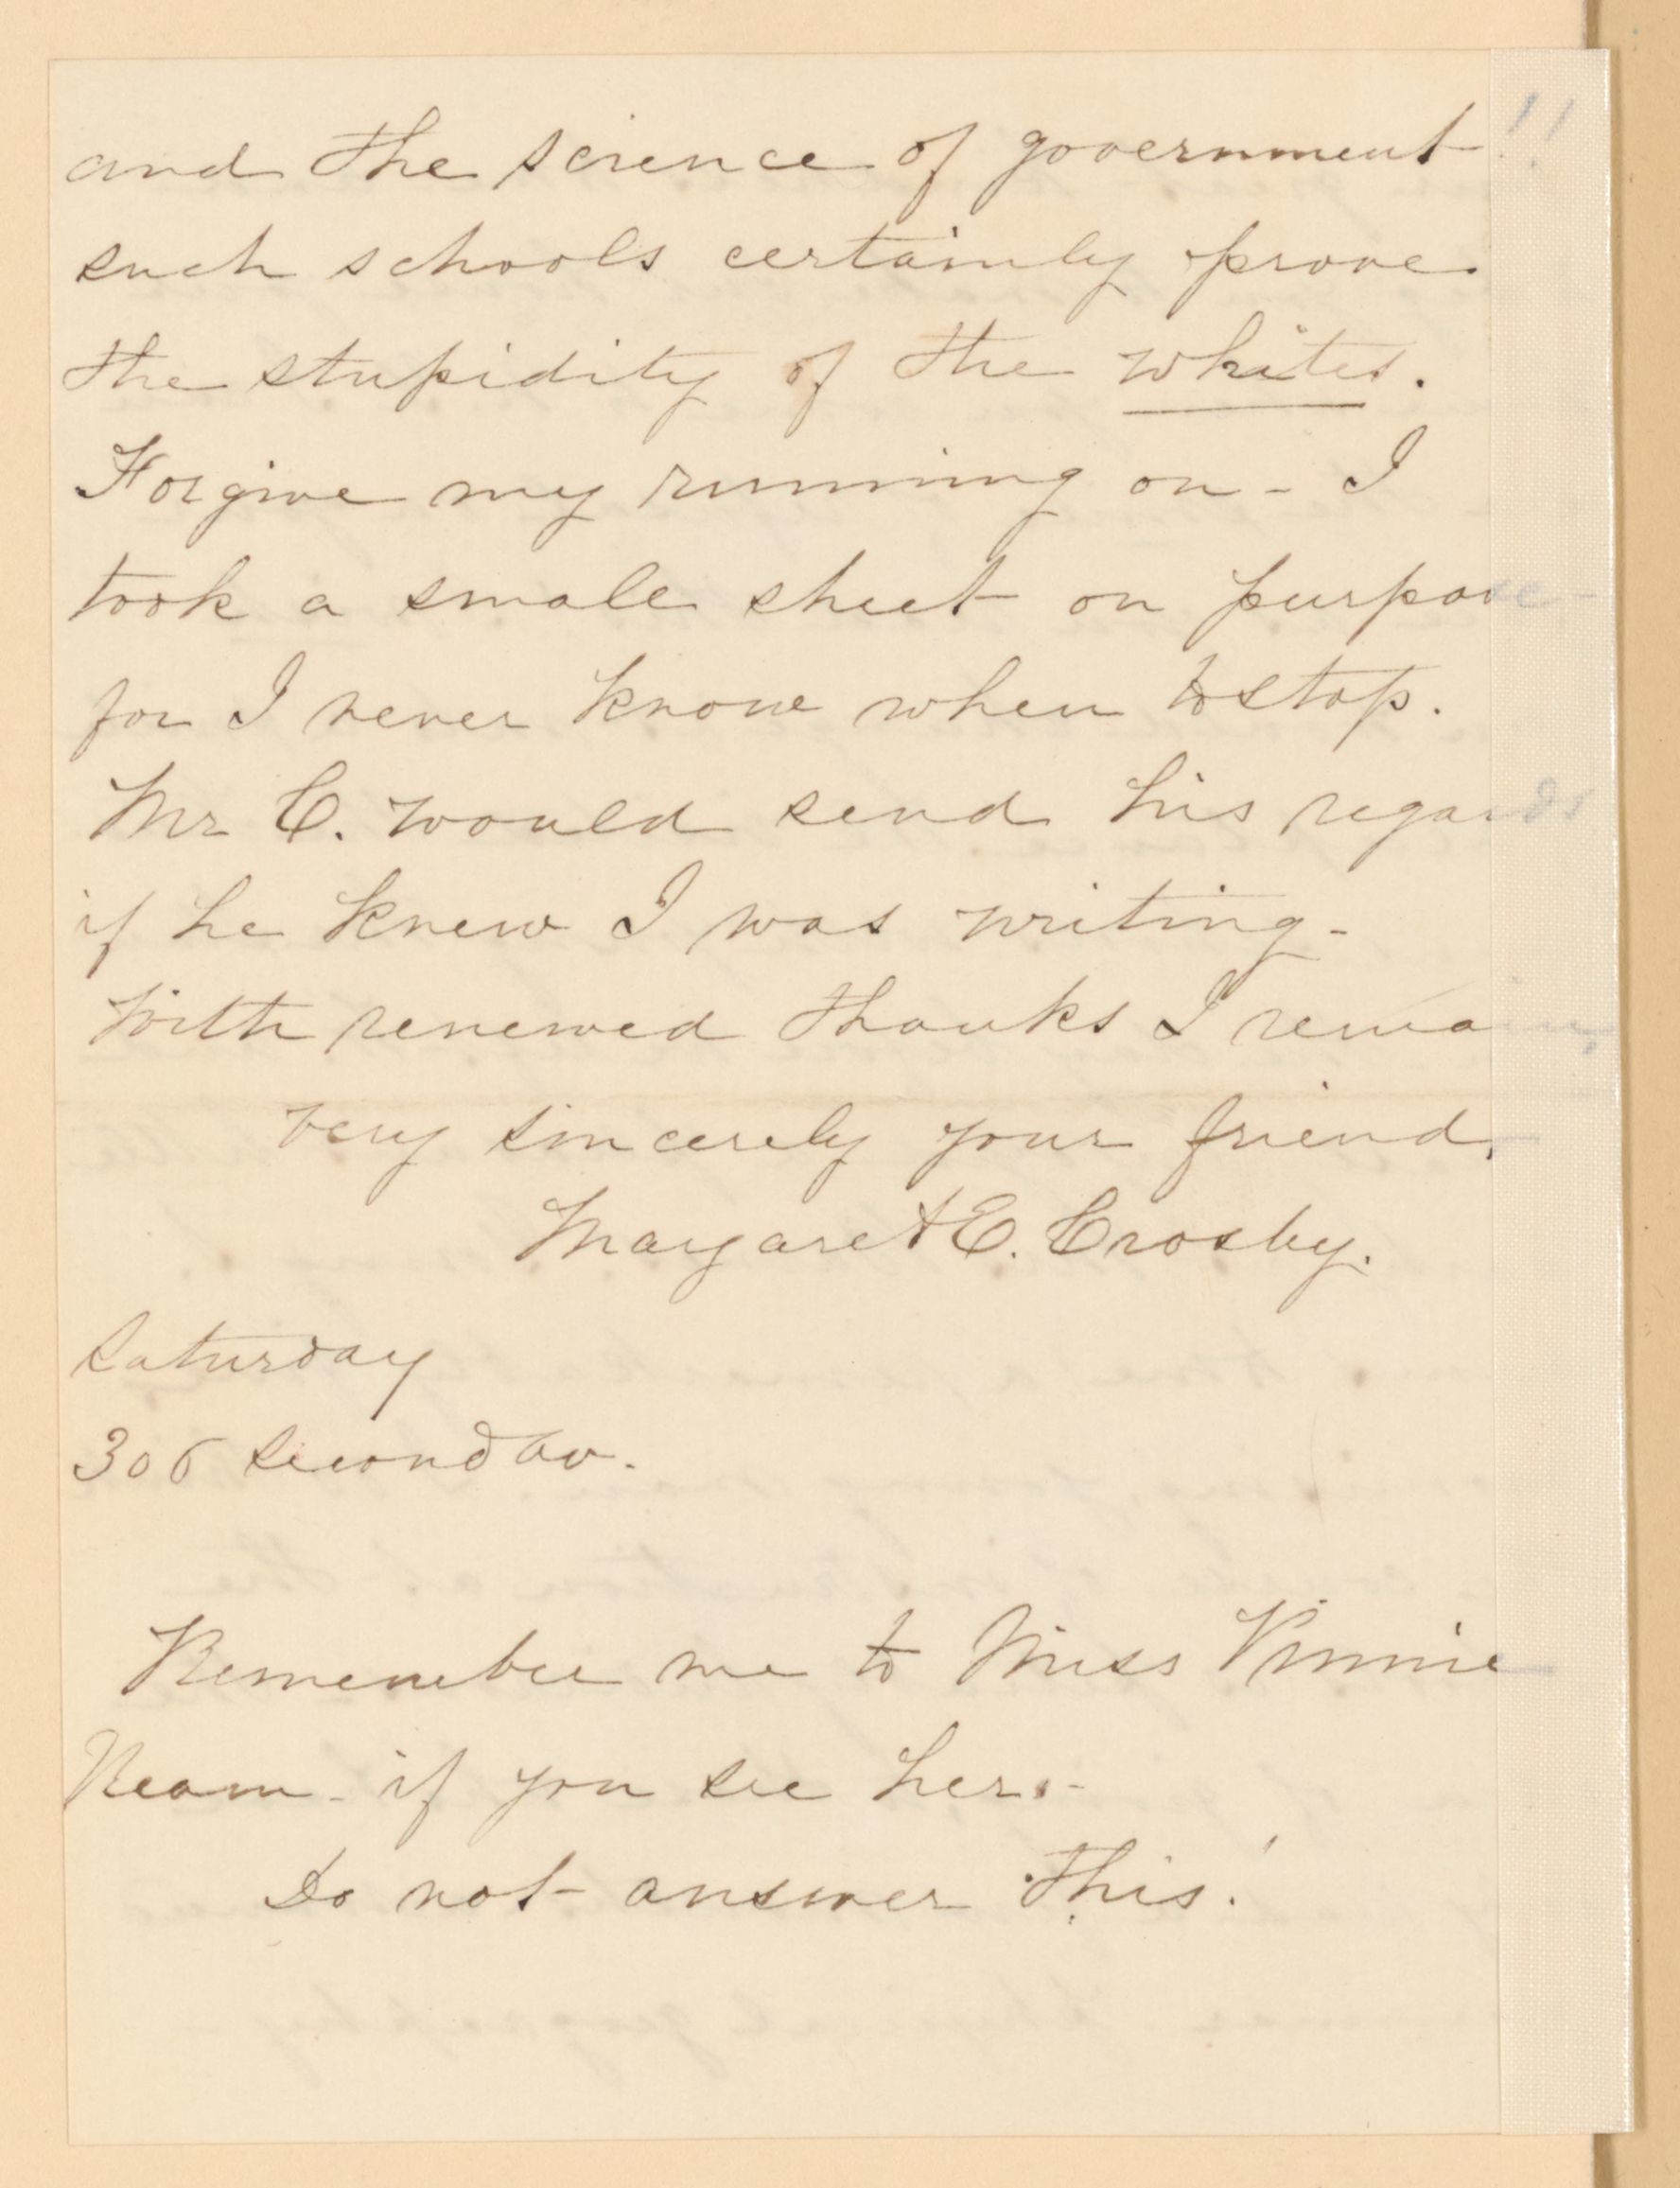 and the science of government!!
such schools certainly prove
the stupidity of the whites.
Forgive my running on - I
took a small sheet on purpose
for I never know when to stop.
Mr C. would send his regards
if he knew I was writing -
With renewed thanks I remain,
very sincerely your friend,
Margaret E. Crosby.
Saturday
306 Second Av.
Remember me to Miss Vinnie
Ream - if you see her. -
Do not answer this!